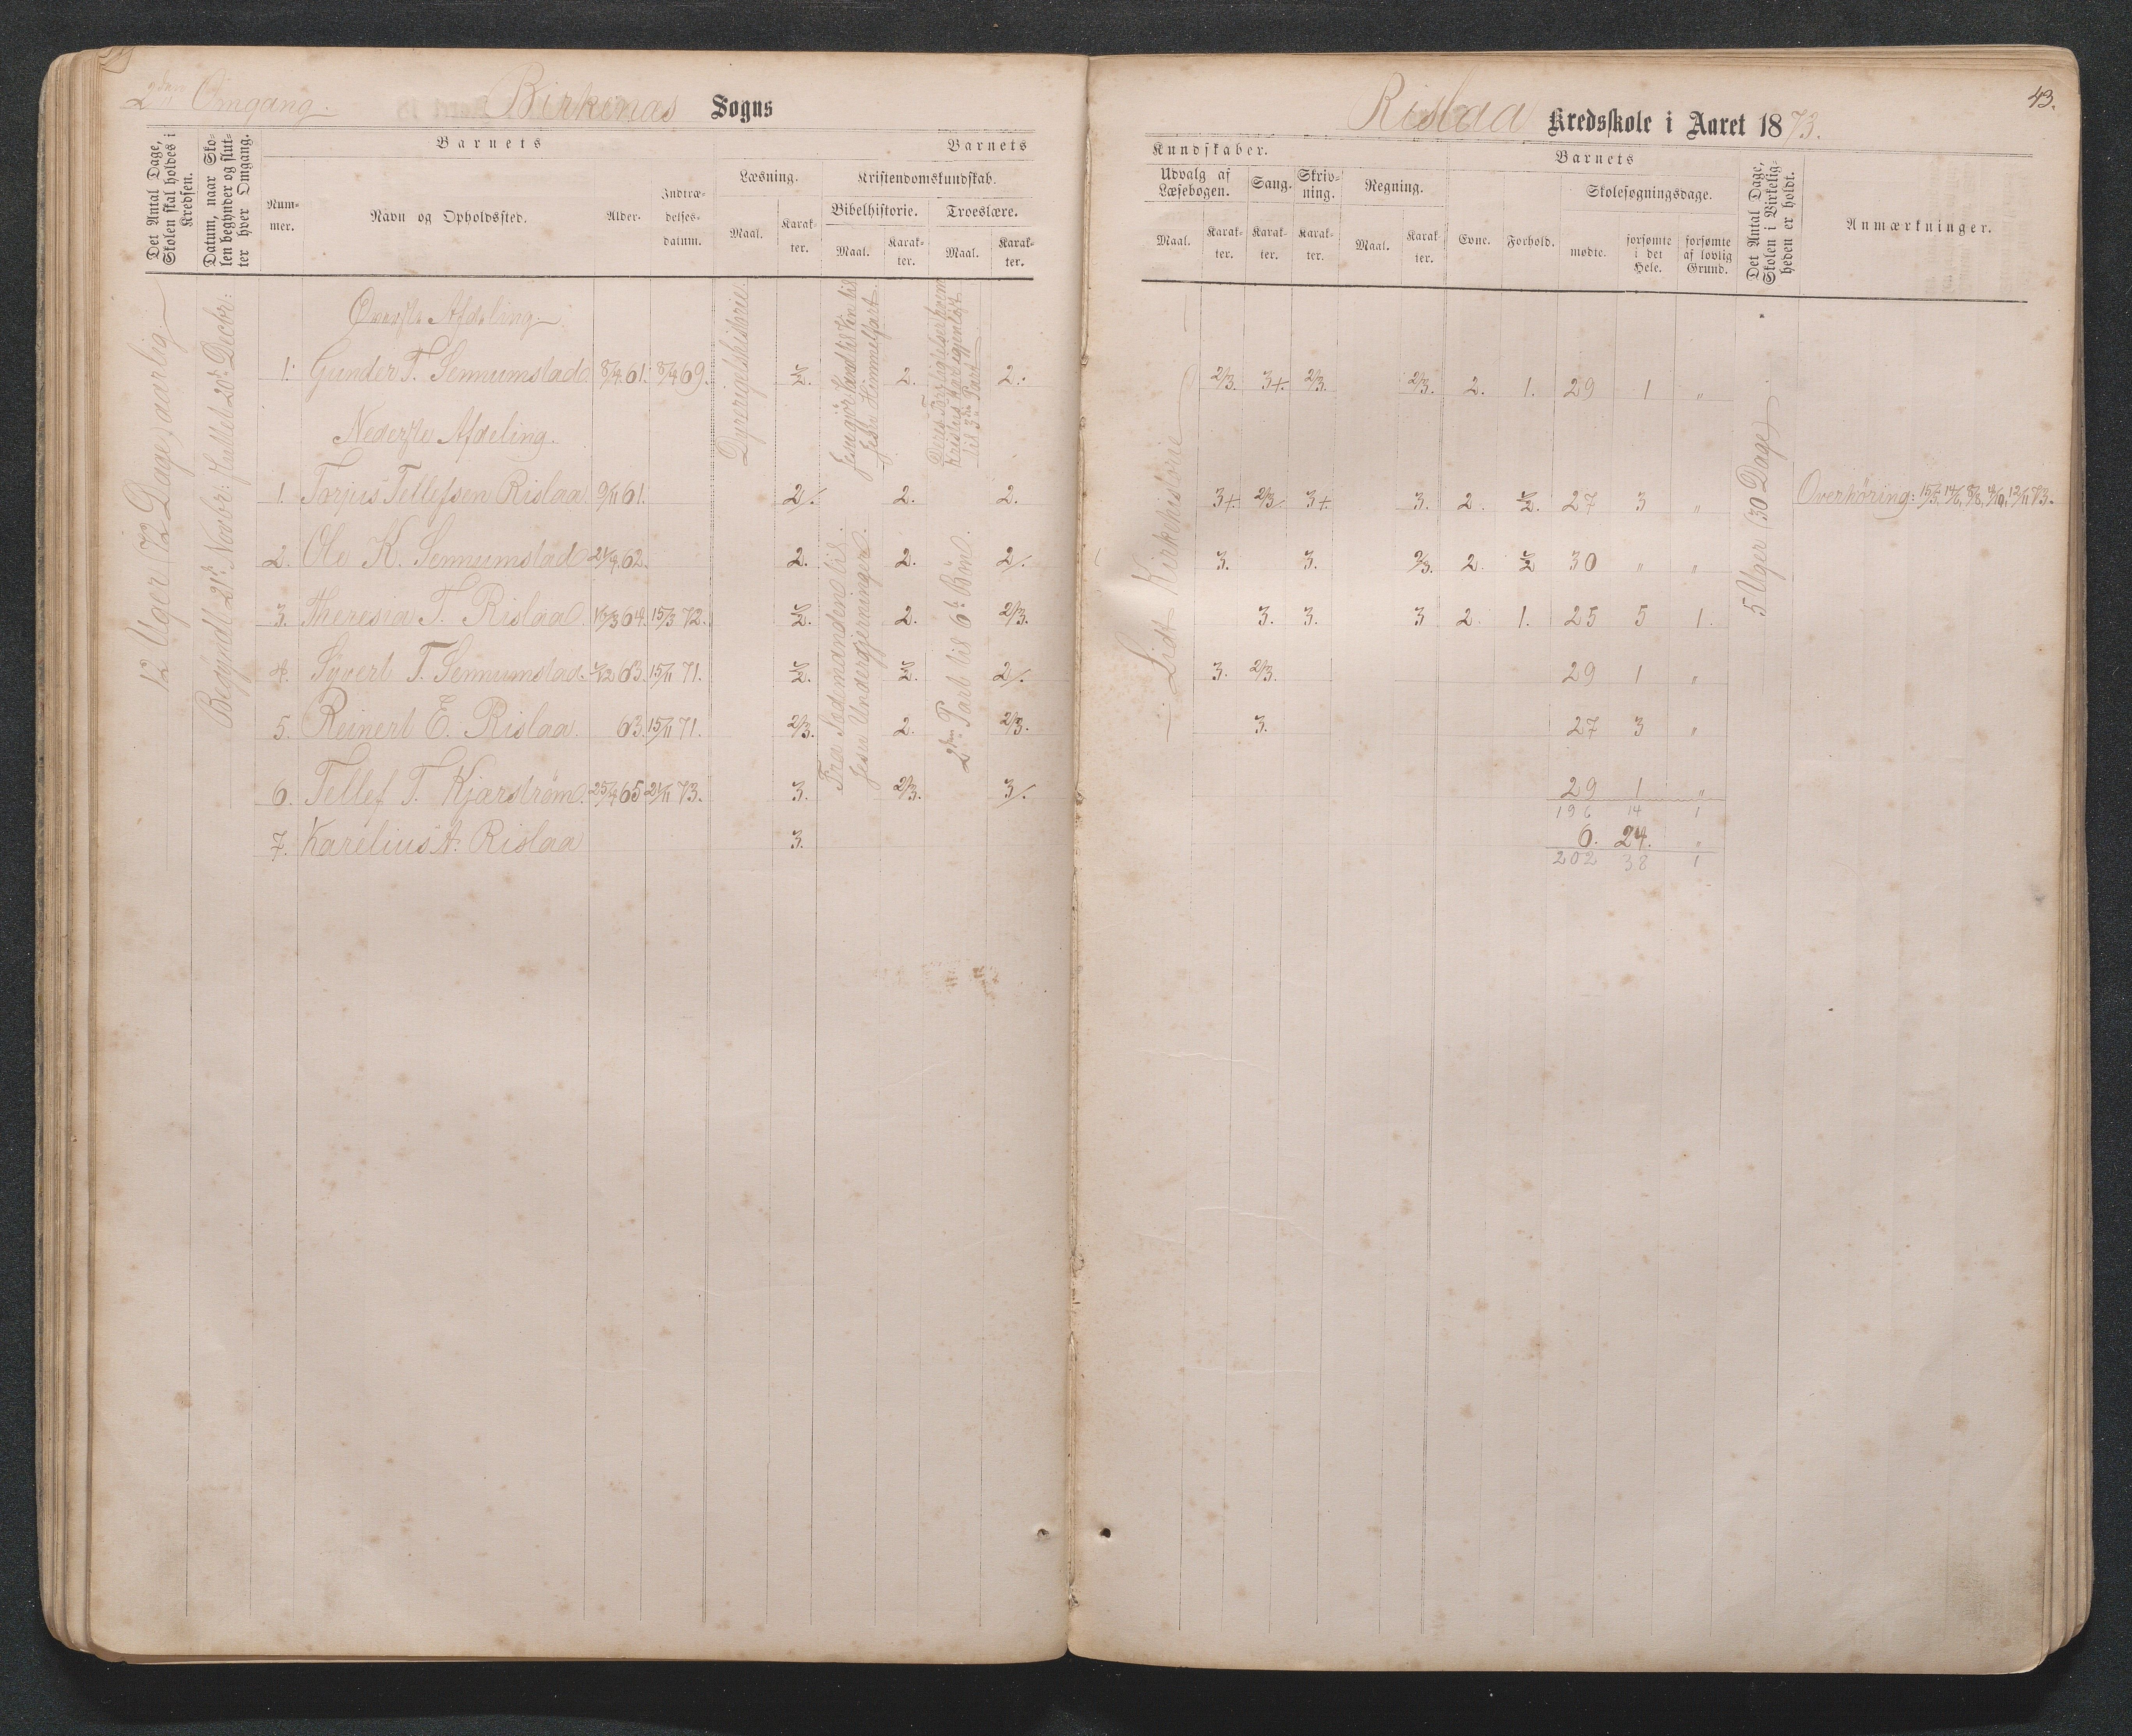 2den Omgang.
Birkenæs Sogns
Det Antal Dage, Skolen skal holdes i Kredsen.
Datum, naar Skolen begynder og slutter hver Omgang.
Barnets
Nummer.
Navn og Opholdssted.
Alder.
Indtrædelsesdatum.
Barnets
Læsning.
Maal.
Karakter.
Kristendomskundskab.
Bibelhistorie.
Maal.
Karakter.
Troeslære.
Maal.
Karakter.
12 Uger (72 Dage) aarlig.
Begyndt 21de Novbr: sluttet 20de Decbr:
Dyrerigetshistorie.
Fra Sædemanden til Jesu Undergjerninger.
2den Part til 6te Bøn.
Øverste Afdeling.
1. Gunder T. Senumstad. 8/4 61. 8/4 69. ½. 2. 2.
Nederste Afdeling.
1. Torjus Tellefsen Rislaa 9/11 61. 2/. 2. 2.
2. Ole K. Senumstad 21/9 62. 2. 2. 2/.
3. Theresia T. Rislaa. 64. 15/3 72. ½. 2. 2/3.
4. Syvert T. Senumstad. 63. 15/11 71. ½. ½. 2/.
5. Reinert E. Rislaa. 63. 15/11 71. 2/3. 2. 2/3.
6. Tellef T. Kjærstrøm. 25/4 65 21/11 73. 3. 2/3. 3/.
7. Karelius A. Rislaa 3.
43.
Rislaa Kredsskole i Aaret 1873.
Kundskaber.
Udvalg af Læsebogen.
Maal.
Karakter.
Sang.
Karakter.
Skrivning.
Karakter.
Regning.
Maal.
Karakter.
Barnets
Evne.
Forhold.
Skolesøgningsdage.
mødte.
forsømte i det Hele.
forsømte af lovlig Grund.
Det Antal Dage, Skolen i Virkeligheden er holdt.
Anmærkninger.
Lidt Kirkehistorie
5 Uger (30 Dage)
2/3. 3+. 2/3. 2/3. 2. 1. 29 1 "
3+. 2/3/. 3+. 3. 2. ½. 27 3 " Overhøring:
3. 3. 2/3. 2. ½ 30 " "
3. 3. 3 2. 1. 25 5 1.
3. 2/3. 29 1 "
3. 27 3 "
29 1 "
196 14 1
6. 24. "
202 38 1